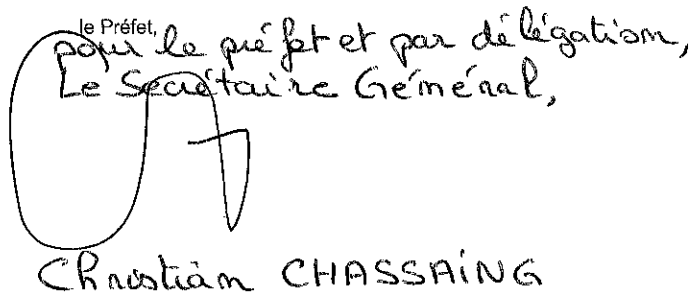 le Préfet,
pour le préfet et par délégation,
Le Secrétaire Général,
Christian CHASSAING